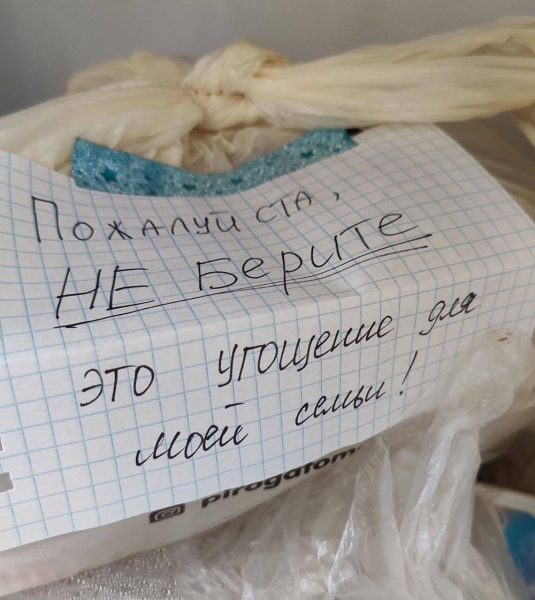 Пожалуйста,
НЕ Берите
это угощение для
моей семьи!
pirogatom